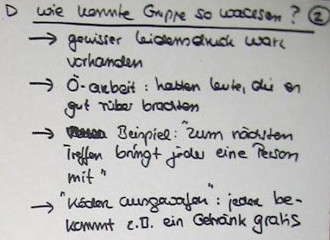 D wie konnte Gruppe so wachsen? ②
→ gewisser Leidensdruck war
vorhanden
→ Ö-arbeit: hatten Leute, die es
gut rüber brachten
→ Beispiel: "zum nächsten
Treffen bringt jeder eine Person
mit"
→ "Köder ausgeworfen": jeder be-
kommt z.B. ein Getränk gratis